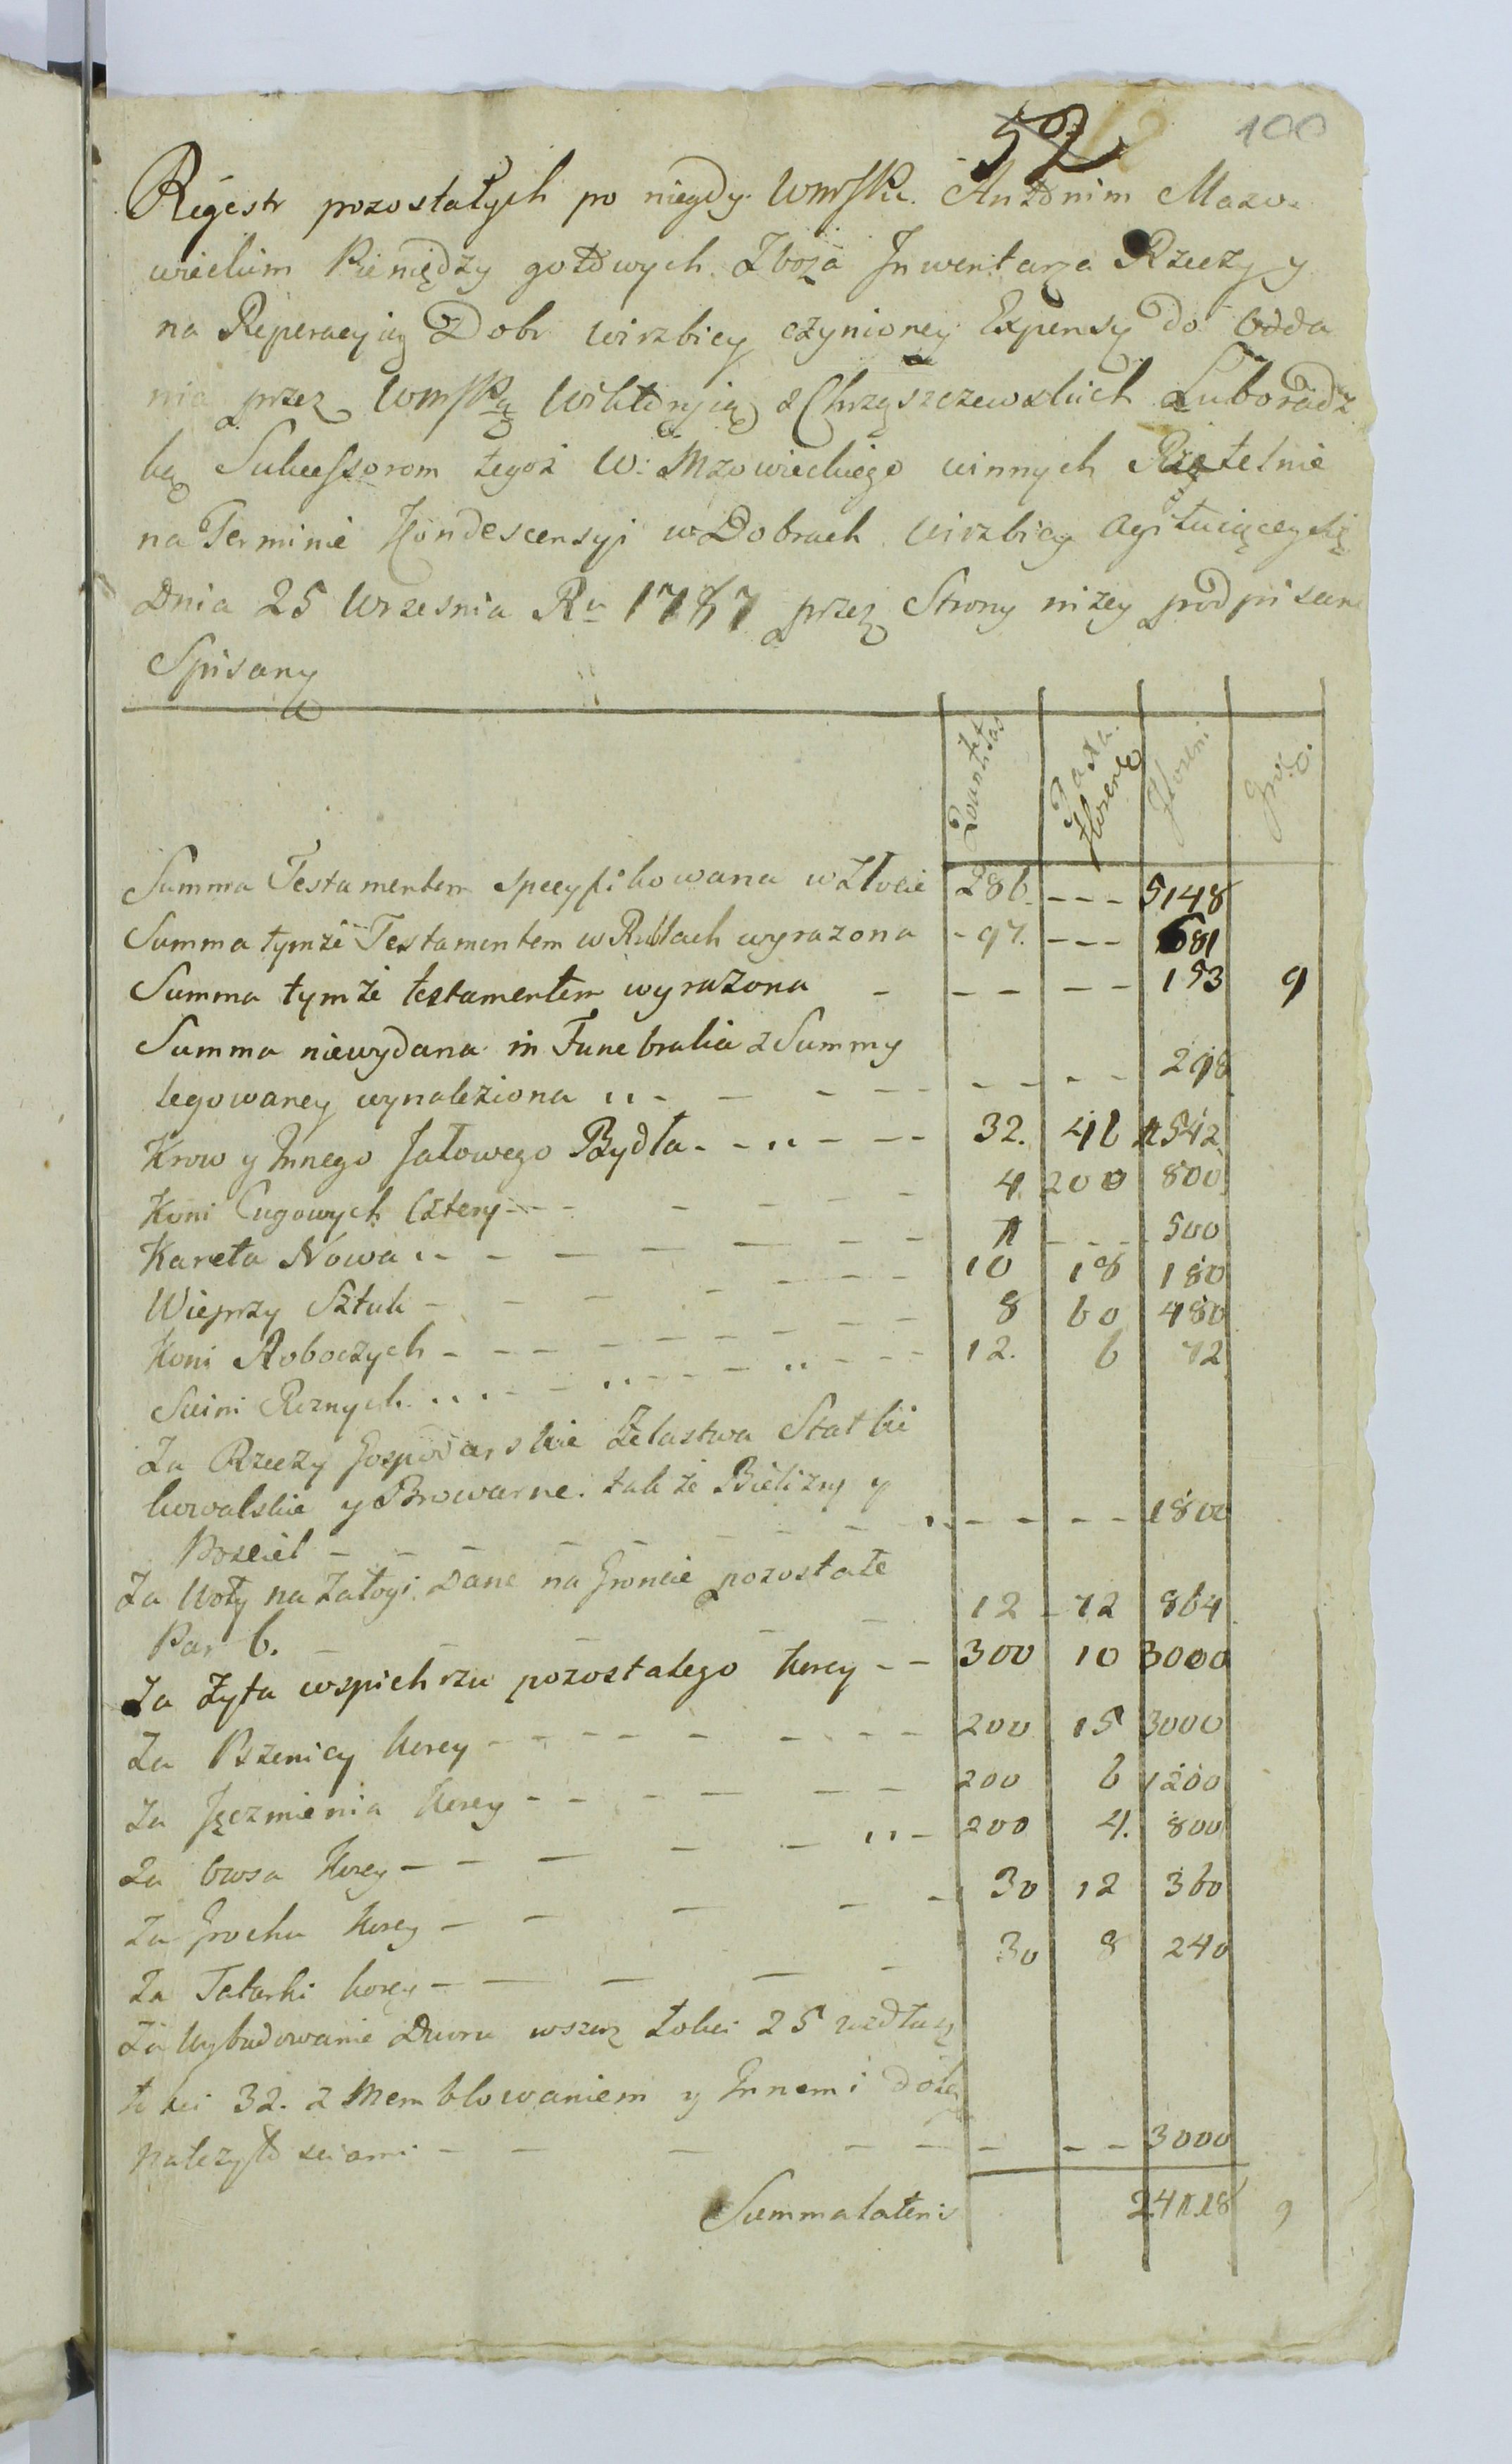 52 100
Regestr pozostałych po niegdy WmJPu. Antonim Mazo-
wieckim Pieniędzy gotowych Zboża Inwentarza Rzeczy y
na Reperacyią Dobr Wirzbicy czynioney Expensy do Odda
nia przez WmJPą Wiktoryią z Chrząszczewskich Luboradz
ką Sukcessorom tegoż W: Mzowieckiego innych Rzetelnie
na Terminie Kondescensyi w Dobrach Wirzbicy Agituiącey się
Dnia 25 Wrzesnia Ru 1787 przez Strony niżey podpisane
Spisany
Quantitas Taxa Florenow Floreni Gro.
Summa Testamentem specyfikowana w Złocie 286. --- 5148
Summa tymże Testamentem w Rublach wyrazona - 97. --- 681
Summa tymże testamentem wyrazona - -- -- 153 9
Summa niewydana in Funebralia z Summy
legowaney wynaleziona - - - - - - 298
Krow y Innego Jałowego Bydła - - - - 32. 46 1542
Koni Cugowych Cztery - - - - 4. 200 800
Kareta Nowa - - - - 1 --- 500
Wieprzy Sztuk - - - - 10 18 180
Koni Roboczych - - - - 8 60 480
Swini Rcznych - - - - 12. 6 72
Za Rzeczy Gospodarskie Żelastwa Statki
kowalskie y Browarne. także Bielizny y
Posciel - - - - - - 1800
Za Woły na Załogi Dane na Gróncie pozostałe
Par 6. - - - 12 - 72 864
Za Zyta w spichrzu pozostałego korcy - - 300 10 3000
Za Pszenicy korcy - - - - 200 15 3000
Za Jęczmienia korcy - - - - 200 6 1200
Za Owsa korcy - - - - 200 4. 800
Za Grochu korcy - - - - 30 12 360
Za Tatarki korcy - - - - 30 8 240
Za Wybudowanie Dworu wszerz Łokci 25 wzdłusz
łokci 32. z Memblowaniem y Innemi do tey
należytościami - - - - - - 3000
Summa lateris 24118 9